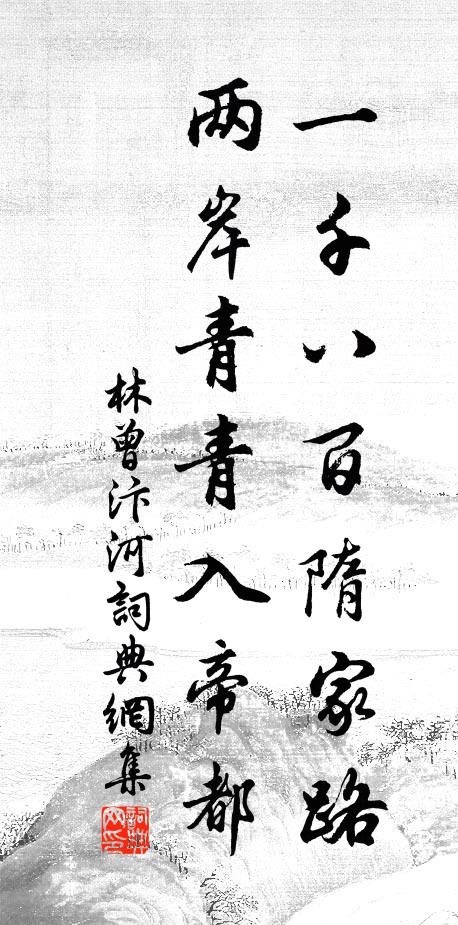 一千八百隋家路
两岸青青入帝都
林曾汴河詞典網集
詞典网印